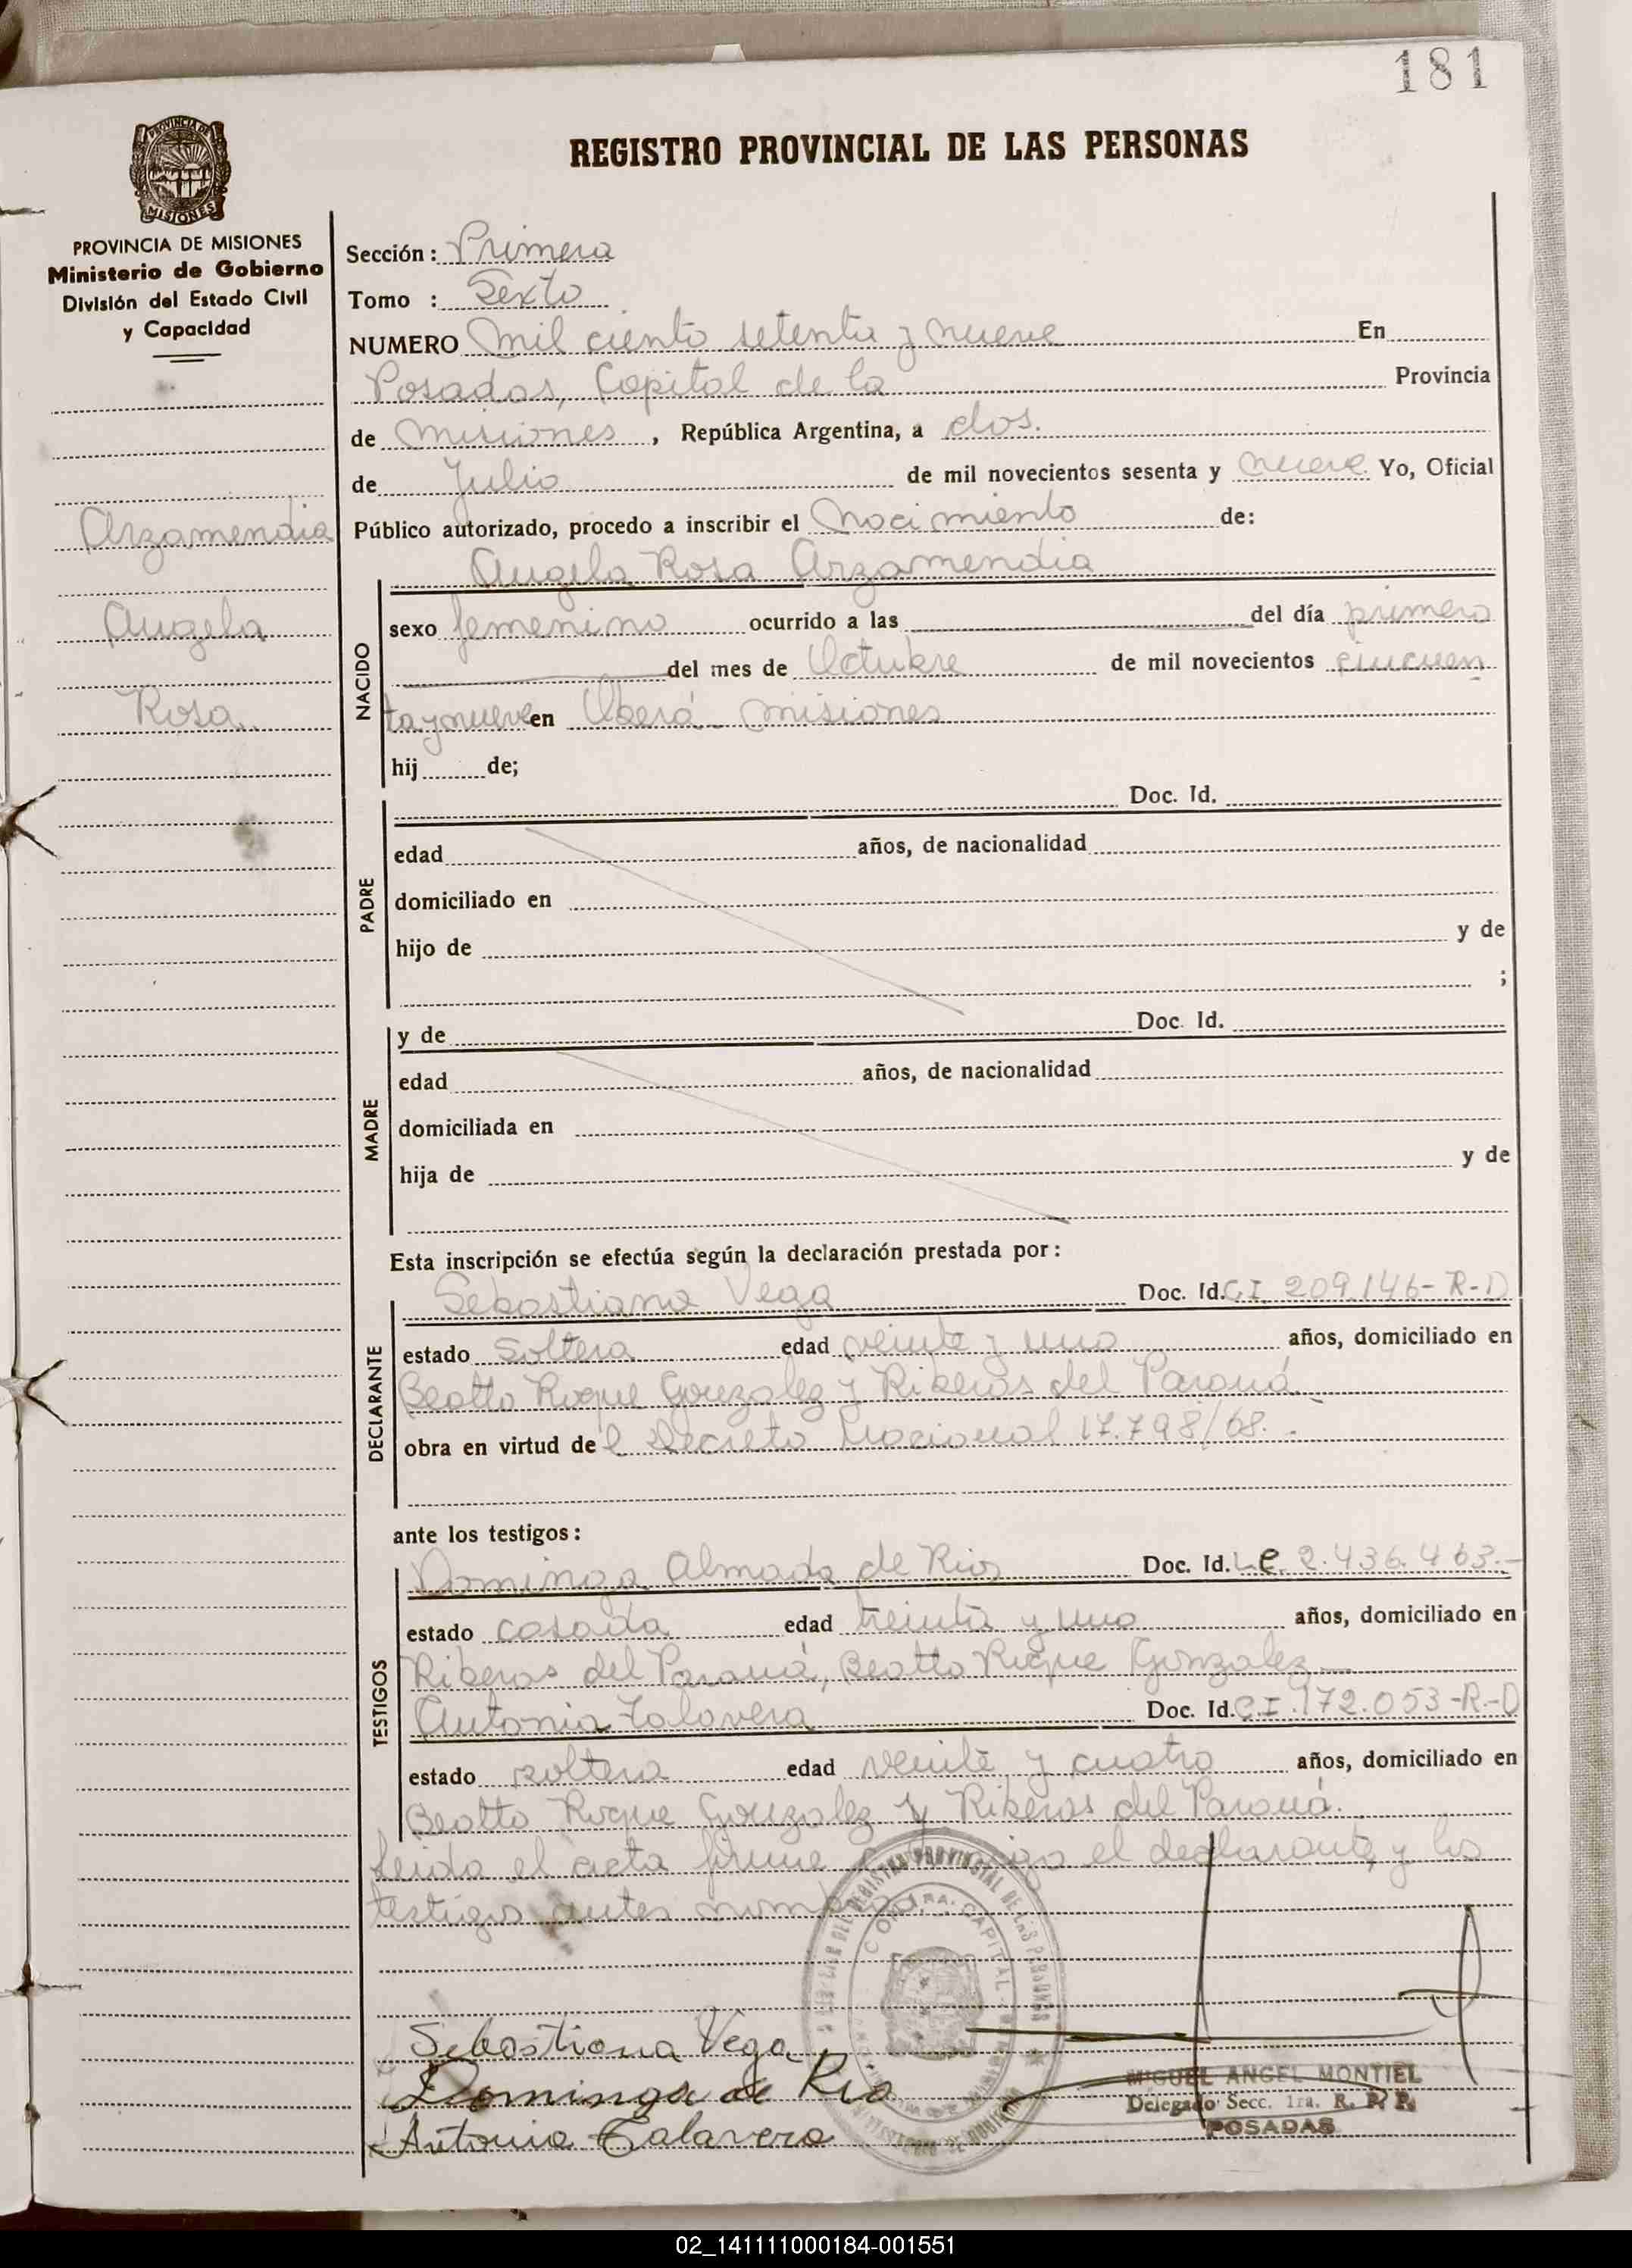 181
REGISTRO PROVINCIAL DE LAS PERSONAS
PROVINCIA DE MISIONES
PROVINCIA DE MISIONES
Ministerio de Gobierno
División del Estado Civil
y Capacidad
Arzamendia
Angela
Rosa
Sección: Primera
Tomo : Sexto
NUMERO mil ciento setenta y nueve En
Posadas, Capital de la Provincia
de Misiones, República Argentina, a dos.
de Julio de mil novecientos sesenta y nueve Yo, Oficial
Público autorizado, procedo a inscribir el nacimiento de:
Angela Rosa Arzamendia
NACIDO
sexo femenino ocurrido a las del día primero
del mes de Octubre de mil novecientos cincuen
ta y nueve en Oberá - Misiones
hij de;
PADRE
Doc. Id.
edad años, de nacionalidad
domiciliado en
hijo de y de
;
MADRE
y de Doc. Id.
edad años, de nacionalidad
domiciliada en
hija de y de
Esta inscripción se efectúa según la declaración prestada por:
DECLARANTE
Sebastiana Vega Doc. Id. C.I. 209.146-R-D
estado soltera edad veinte y uno años, domiciliado en
Beatto Roque Gonzalez y Riberas del Paraná
obra en virtud del Decreto Nacional 17.798/68.-
ante los testigos:
TESTIGOS
Dominga Almada de Rios Doc. Id. L.C. 2.436.463.-
estado casada edad treinta y uno años, domiciliado en
Riberas del Paraná, Beatto Roque Gonzalez
Antonia Talavera Doc. Id. C.I. 172.053-R-D
estado soltera edad veinte y cuatro años, domiciliado en
Beatto Roque Gonzalez y Riberas del Paraná.
Leida el acta firme el declarante, y los
testigos antes
Sebastiana Vega
Dominga de Rio
Antonia Talavera
MIGUEL ANGEL MONTIEL
Delegado Secc. 1ra. R. P. P.
POSADAS
02_141111000184-001551